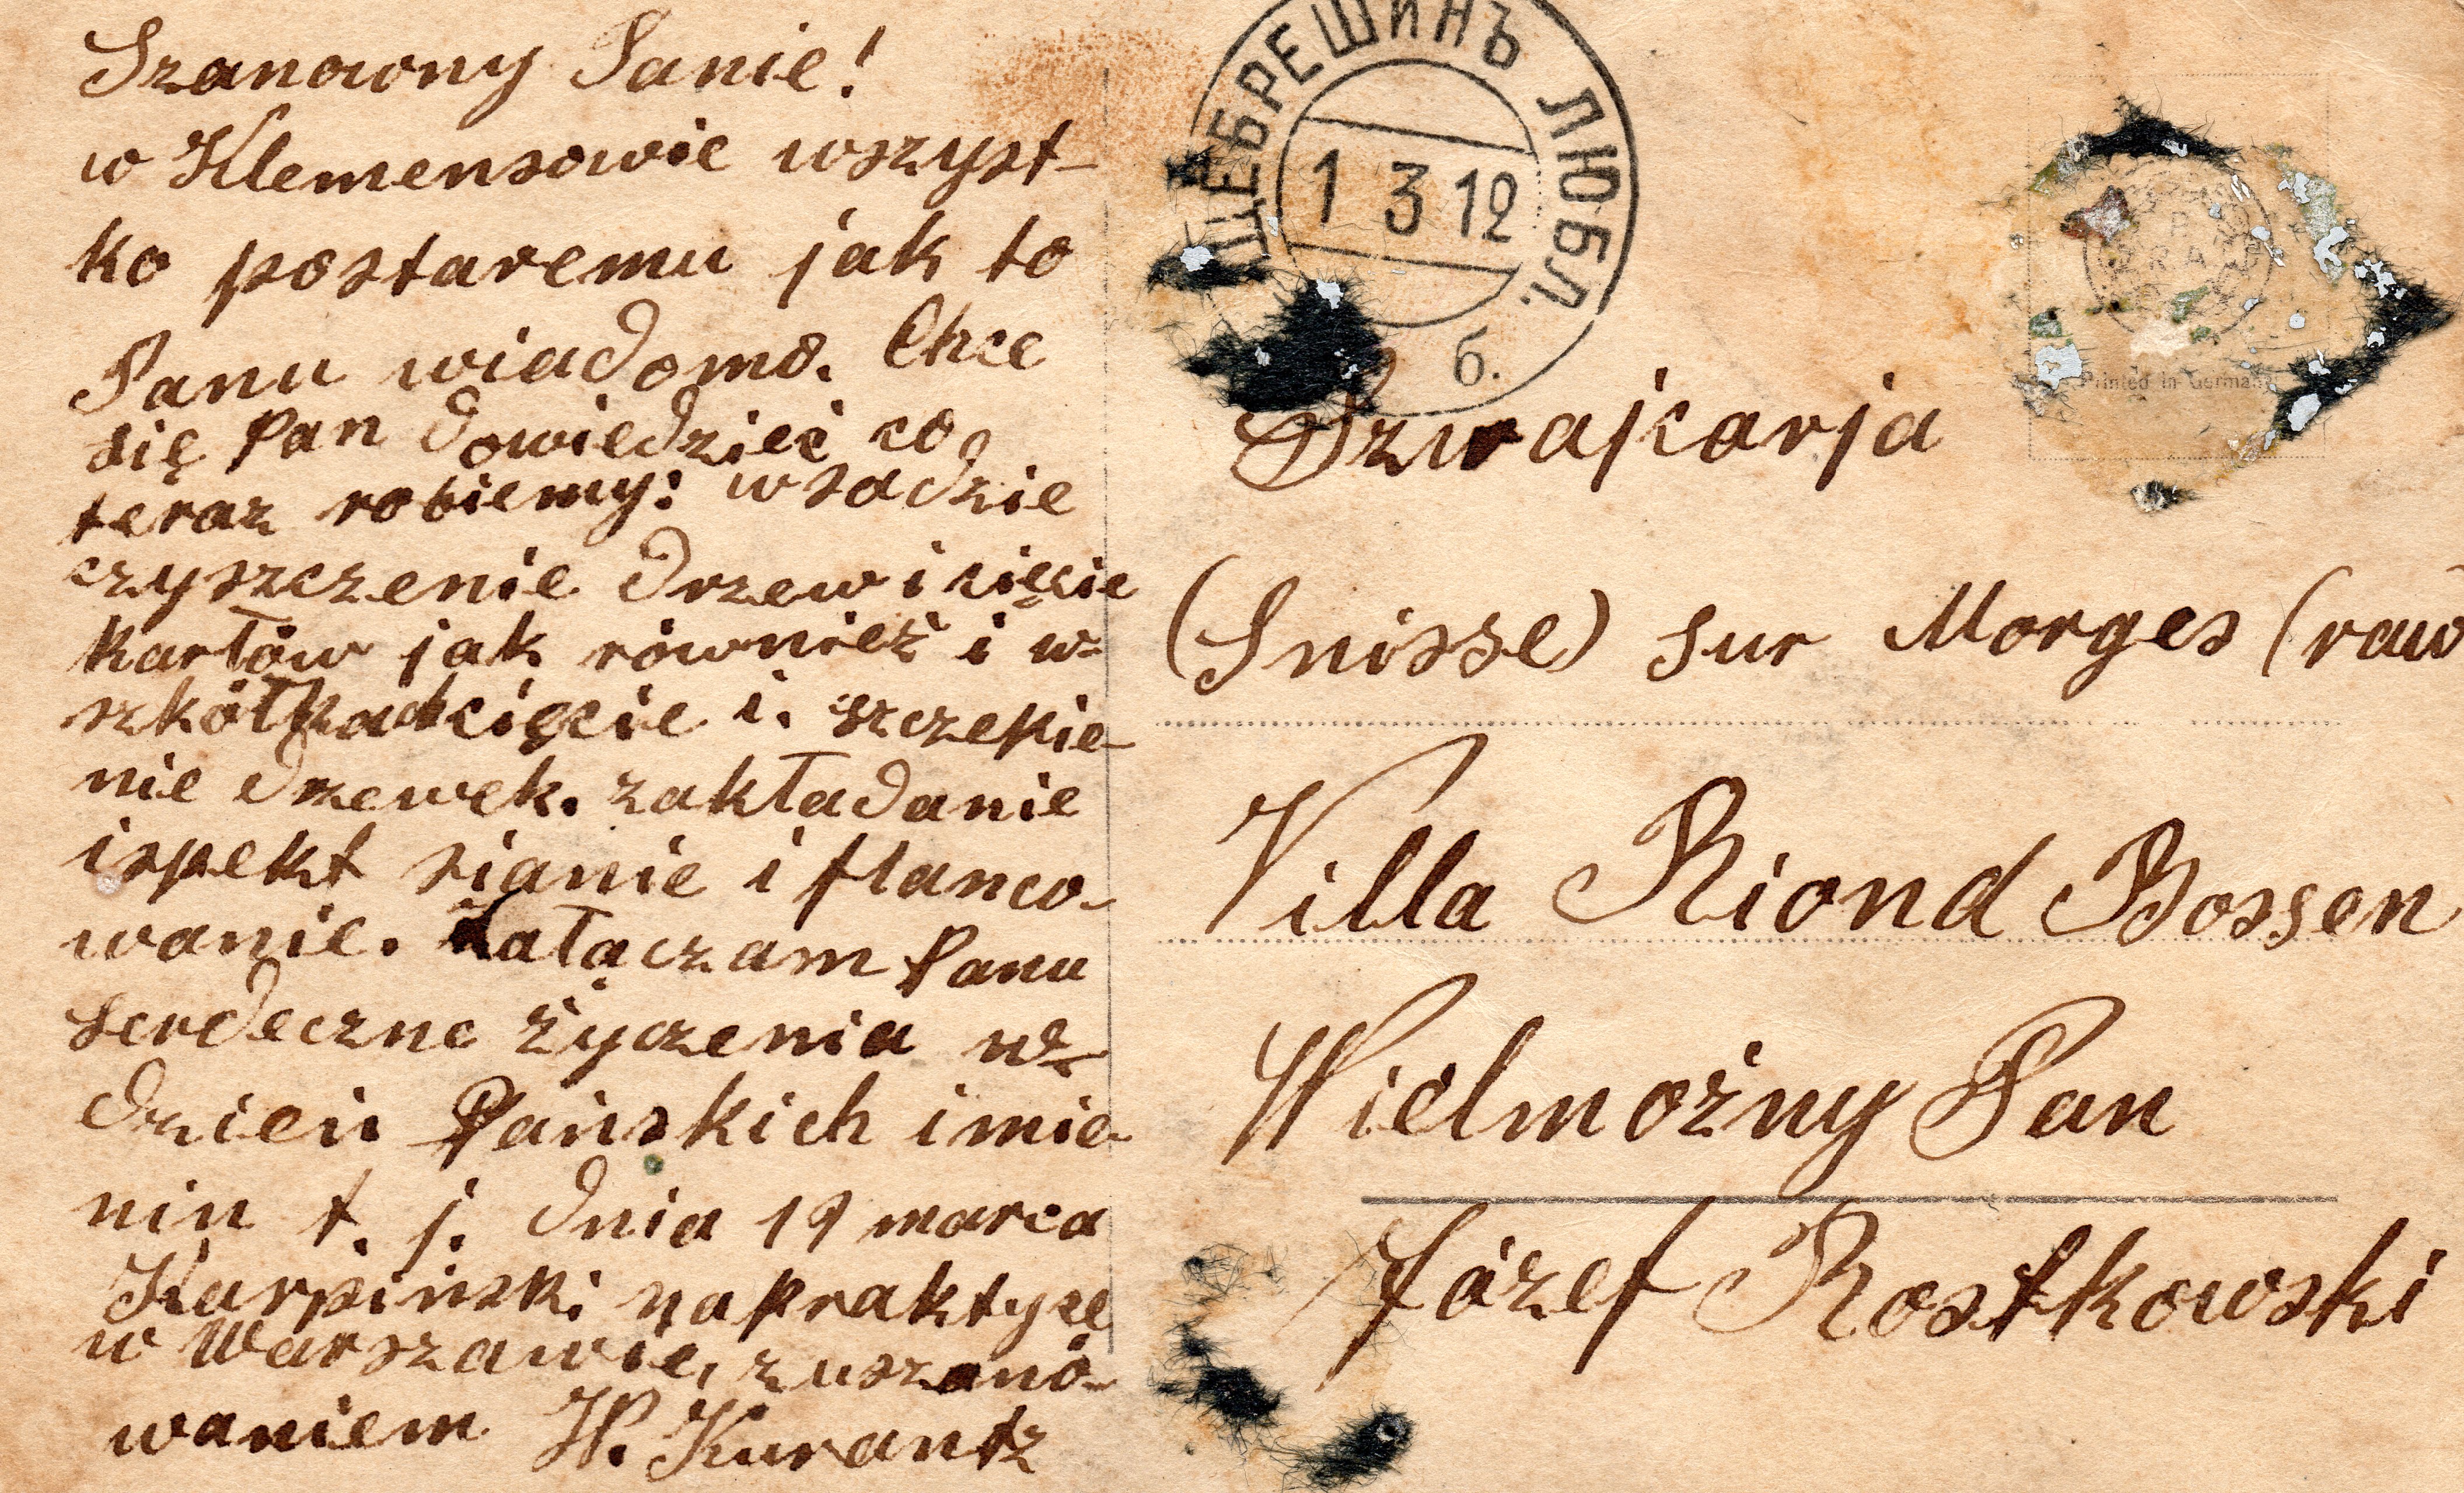 Szanowny Panie!
w Klemensowie wszyst-
ko postaremu jak to
Panu wiadomo. Chce
się Pan dowiedzieć co
teraz robiemy: w sadzie
czyszczenie drzew i cięcie
kartów jak również i w
szkółkach cięcie i. szczepie-
nie drzewek. zakładanie
ispekt sianie i flanco-
wanie. Załączam Panu
serdeczne życzenia w
dzień Pańskich imie-
nin t. j. dnia 19 marca
Karpiński na praktyce
w Warszawie, z uszano-
waniem W. Kurantz
ЩЕБРЕШИНЪ ЛЮБЛ.
1 3 12
б.
Printed in German
Szwajcarja
(Snisse) sur Morges (
Villa Riond Bossen
Wielmożny Pan
Józef Rostkowski